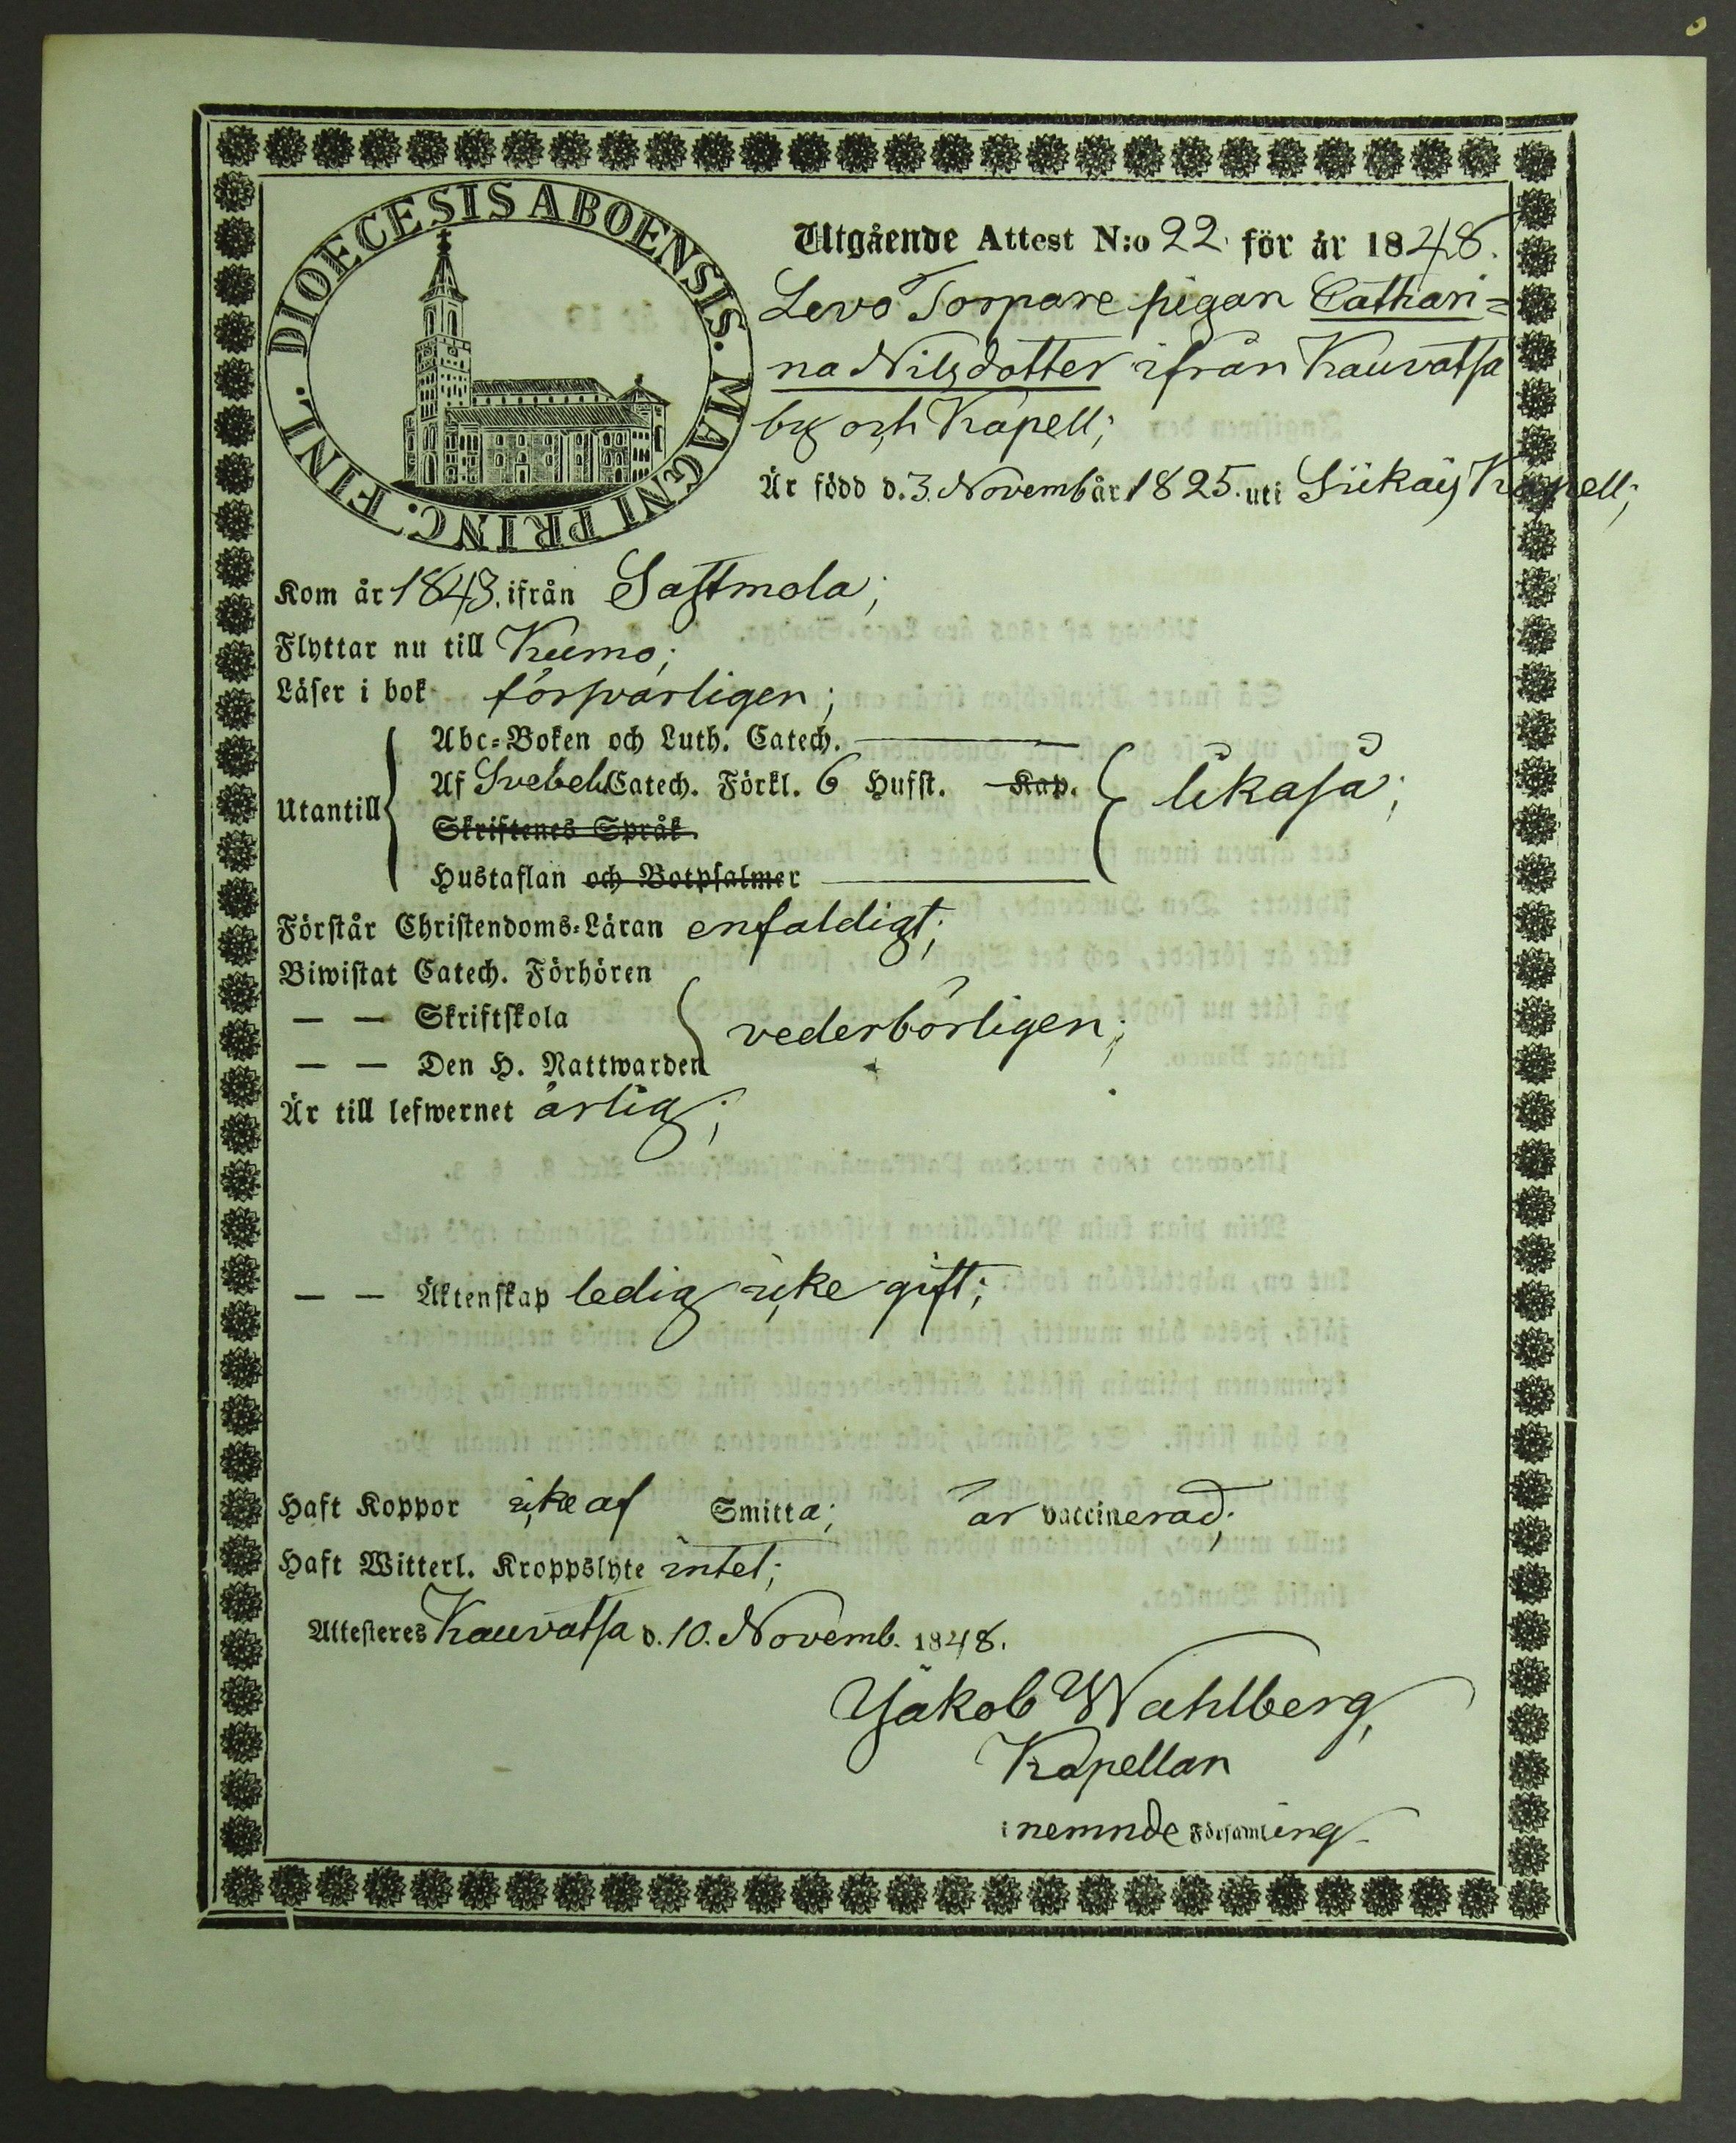 DIOECESIS ABOENSIS. MAGNI PRINC. FINL.
Utgående Attest N:o 22. för år 1848.
Levo Torpare pigan Cathari=
na Nilsdotter ifrån Kauvatsa
by och Kapell;
Är född d. 3. Novemb år 1825. uti Siikais Kapell;
Kom år 1843. ifrån Sastmola;
Flyttar nu till Kumo;
Läser i bok försvarligen;
Abc=Boken och Luth. Catech.
Utantill Af Svebel. Catech. Förkl. 6 Hufst. Kap. likaså;
Skriftenes Språk.
Hustaflan och Botpsalmer
Förstår Christendoms=Läran enfaldigt;
Biwistat Catech. Förhören
— — Skriftskola vederbörligen;
— — Den H. Nattwarden
Är till lefwernet ärlig;
— — Äktenskap ledig icke gift;
Haft Koppor icke af Smitta; är vaccinerad;
Haft Witterl. Kroppslyte intet;
Attesteres Kauvatsa d. 10. Novemb. 1848.
Jakob Wahlberg,
Kapellan
i nemnde Församling.